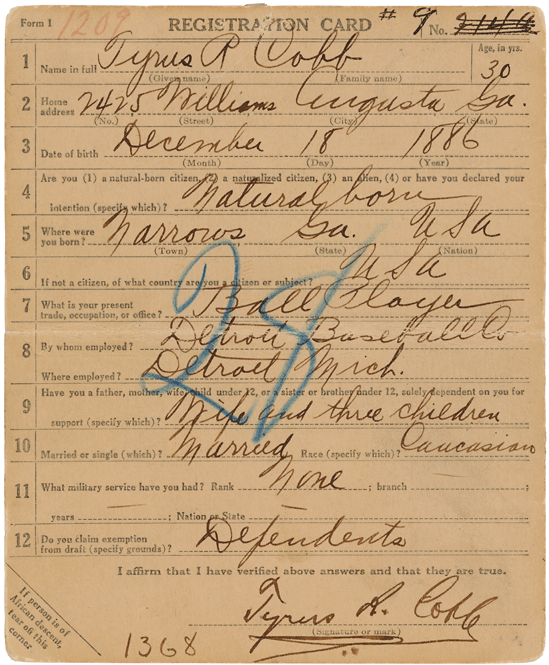 Form 1 1209 REGISTRATION CARD # 9 No.
1 Name in full Tyrus R Cobb Age, in yrs. 30
(Given name) (Family name)
2 Home address 2425 Williams Augusta Ga.
(No.) (Street) (City) (State)
3 Date of birth December 18 1886
(Month) (Day) (Year)
4 Are you (1) a natural-born citizen, (2) a naturalized citizen, (3) an alien, (4) or have you declared your
intention (specify which)? Natural born
5 Where were you born? Narrows Ga. USA
(Town) (State) (Nation)
6 If not a citizen, of what country are you a citizen or subject? USA
7 What is your present trade, occupation, or office? Ball Player
8 By whom employed? Detroit Baseball Co
Where employed? Detroit Mich.
9 Have you a father, mother, wife, child under 12, or a sister or brother under 12, solely dependent on you for
support (specify which)? Wife and three children
10 Married or single (which)? Married Race (specify which)? Caucasian
11 What military service have you had? Rank None ; branch ;
years ; Nation or State
12 Do you claim exemption from draft (specify grounds)? Dependents
I affirm that I have verified above answers and that they are true.
Tyrus R. Cobb
(Signature or mark)
If person is of
African descent,
tear off this
corner
1368